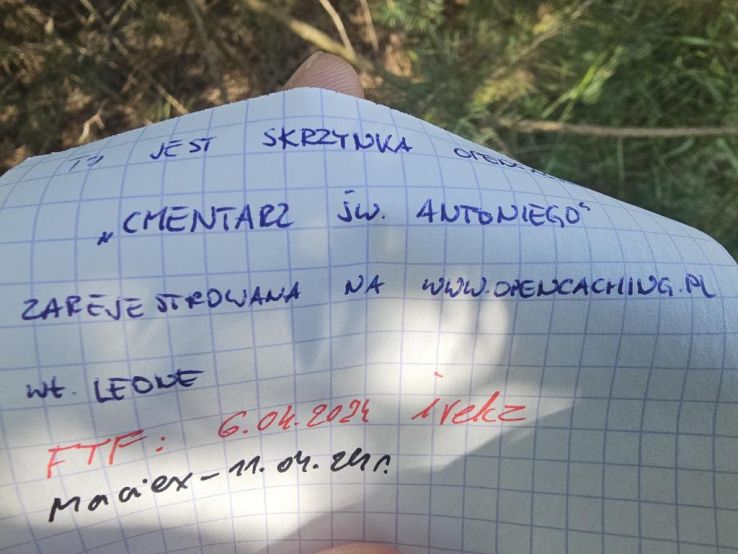 TO JEST SKRZYNKA
„CMENTARZ ŚW. ANTONIEGO"
ZAREJESTROWANA NA WWW.OPENCACHING.PL
WŁ. LEONE
FTF: 6.04.2024 irekz
Maciex – 11.04.24r.